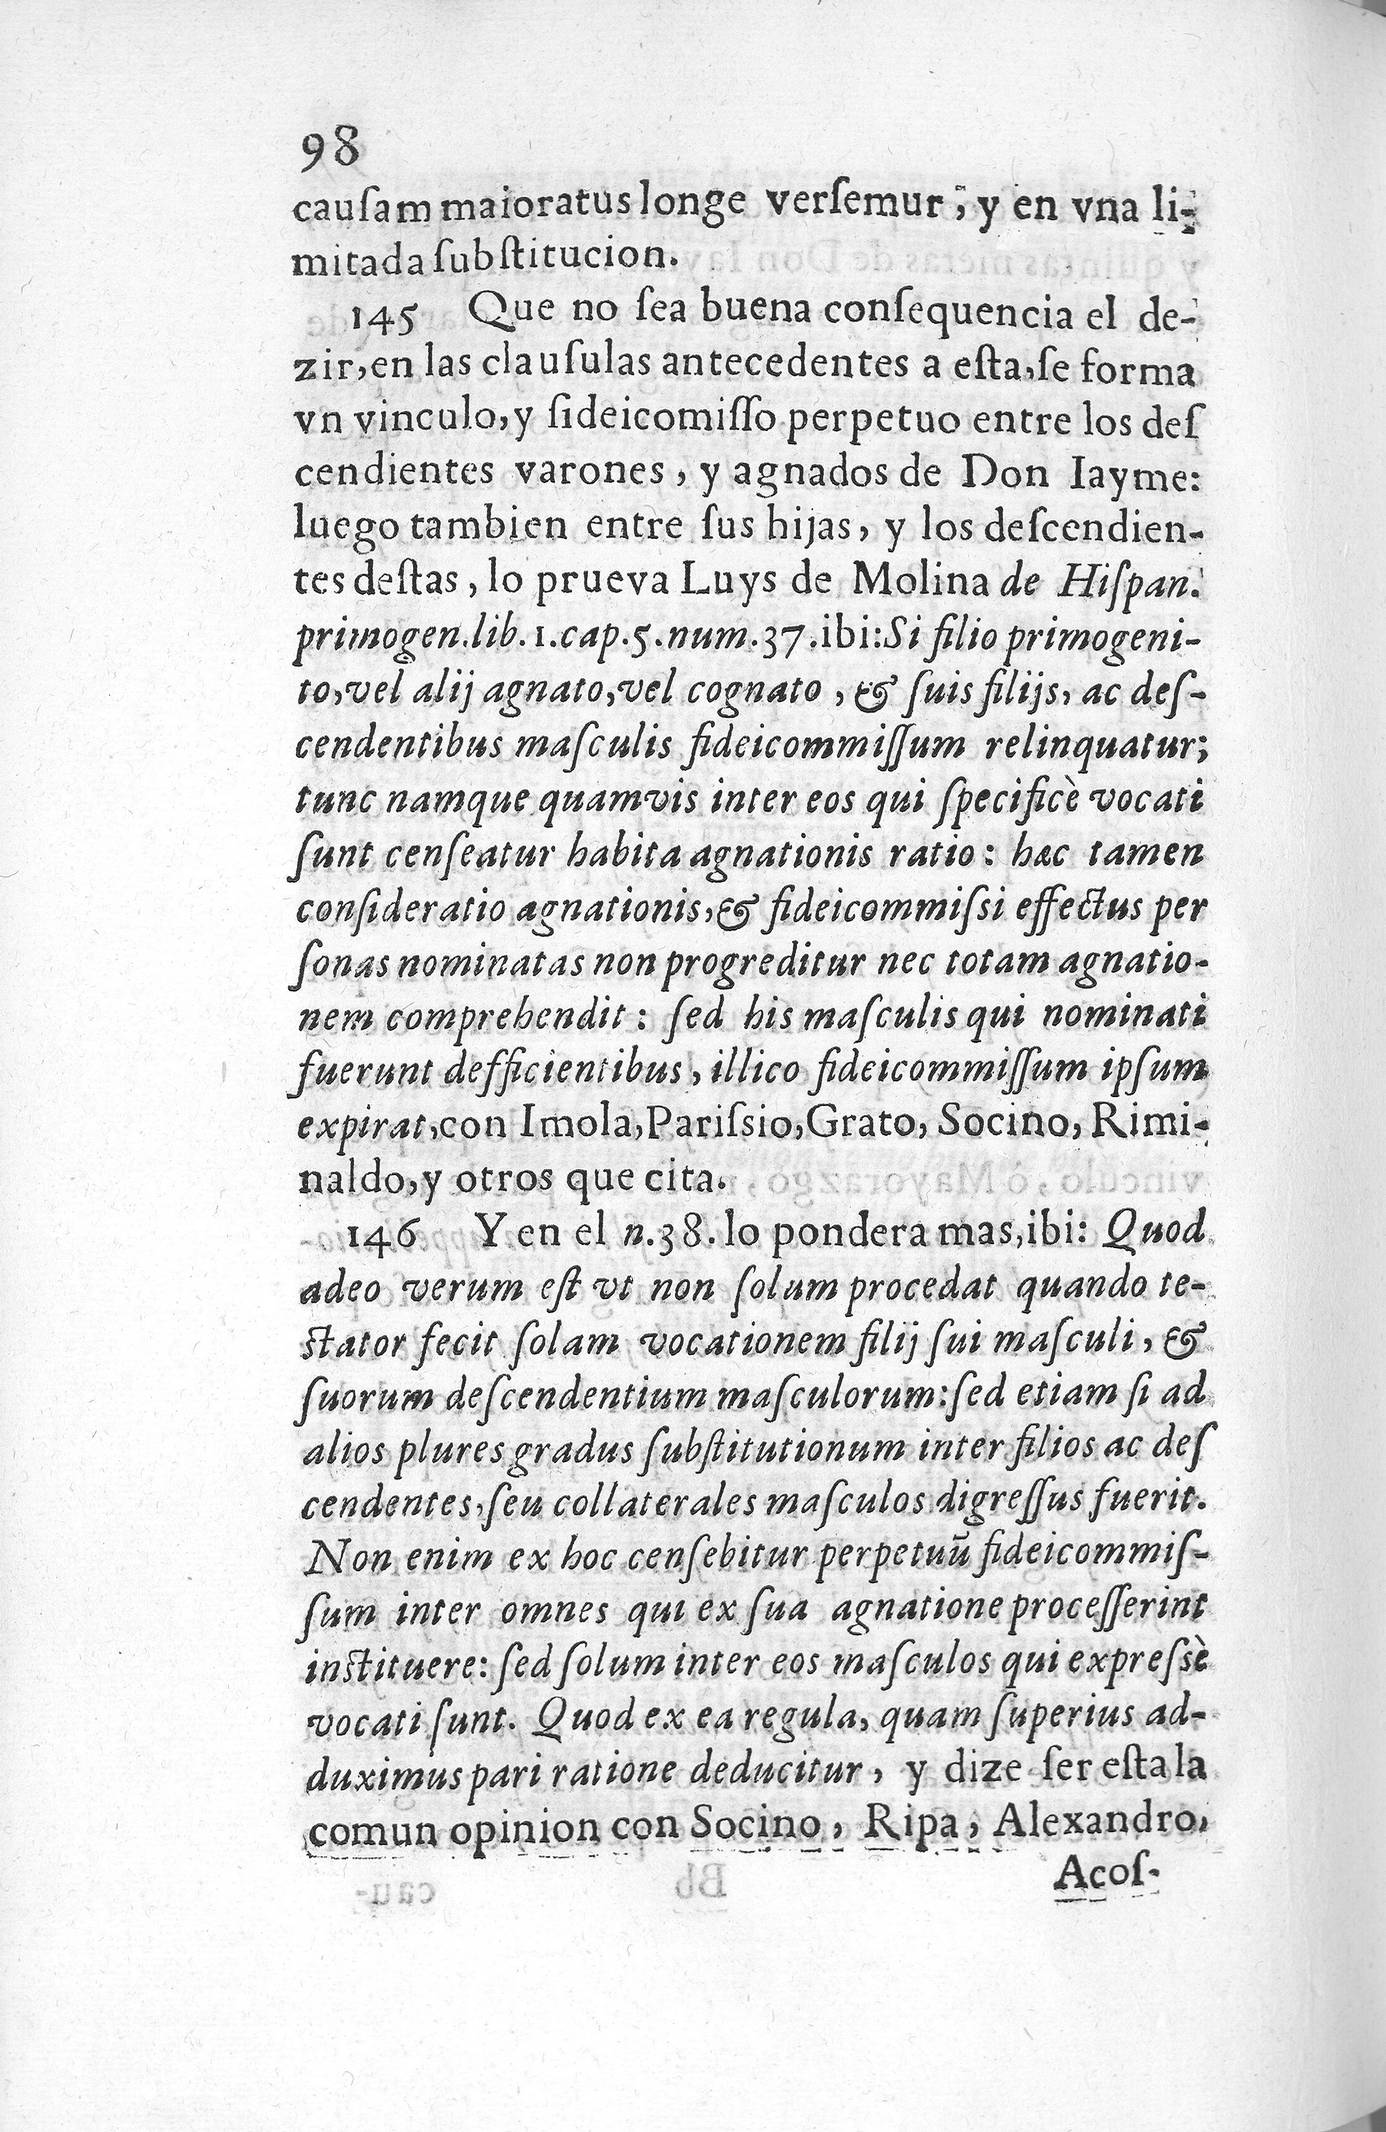 98
cauſam maioratus longe verſemur, y en vna li-
mitada ſubſtitucion.
145 Que no ſea buena conſequencia el de-
zir, en las clauſulas antecedentes a eſta, ſe forma
vn vinculo, y fideicomiſſo perpetuo entre los deſ
cendientes varones, y agnados de Don Iayme:
luego tambien entre ſus hijas, y los deſcendien-
tes deſtas, lo prueva Luys de Molina de Hiſpan.
primogen. lib. 1. cap. 5. num. 37. ibi: Si filio primogeni-
to, vel alij agnato, vel cognato, & ſuis filijs, ac deſ-
cendentibus maſculis fideicommiſſum relinquatur;
tunc namque quamvis inter eos qui ſpecificè vocati
ſunt cenſeatur habita agnationis ratio: hæc tamen
conſideratio agnationis, & fideicommiſsi effectus per
ſonas nominatas non progreditur nec totam agnatio-
nem comprehendit: ſed his maſculis qui nominati
fuerunt defficientibus, illico fideicommiſſum ipſum
expirat, con Imola, Pariſsio, Grato, Socino, Rimi-
naldo, y otros que cita.
146 Y en el n. 38. lo pondera mas, ibi: Quod
adeo verum eſt vt non ſolum procedat quando te-
ſtator fecit ſolam vocationem filij ſui maſculi, &
ſuorum deſcendentium maſculorum: ſed etiam ſi ad
alios plures gradus ſubſtitutionum inter filios ac deſ
cendentes, ſeu collaterales maſculos digreſſus fuerit.
Non enim ex hoc cenſebitur perpetuũ fideicommiſ-
ſum inter omnes qui ex ſua agnatione proceſſerint
inſtituere: ſed ſolum inter eos maſculos qui expreſsè
vocati ſunt. Quod ex ea regula, quam ſuperius ad-
duximus pari ratione deducitur, y dize ſer eſta la
comun opinion con Socino, Ripa, Alexandro,
Acoſ-